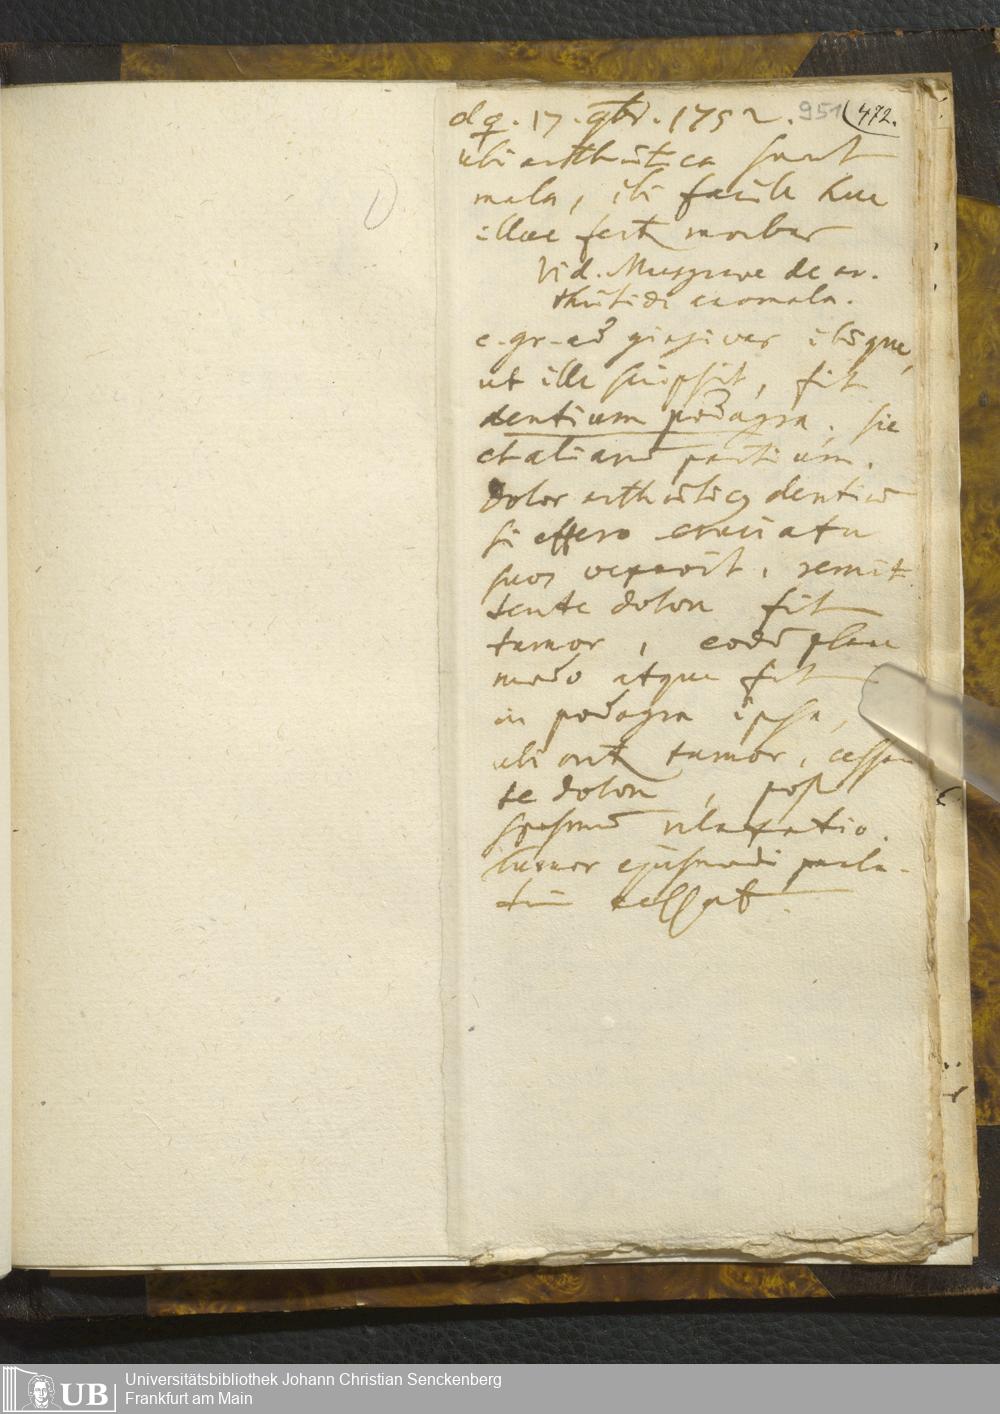 d ♀. 17. 9br. 1752. 951 472.
ubi arthritica sunt
mala, ibi facile huc
illuc fert morbus
Vid. Musgrave de ar-
thritidi anomala.
e. gr. ad gingivas ibique,
ut ille scripsit, fit
dentium podagra, sic
et aliarū partium.
Dolor arthriticꝯ dentiū
si effero cruciatu
suos vexavit, remit
tente dolore fit
tumor, eodē plane
modo atque fit
in podagra ipsa,
ubi orit tumor, cessan
te dolore, post
spasmū relaxatio.
tumor ejusmodi paula-
tim cessat.
UB
Universitätsbibliothek Johann Christian Senckenberg
Frankfurt am Main